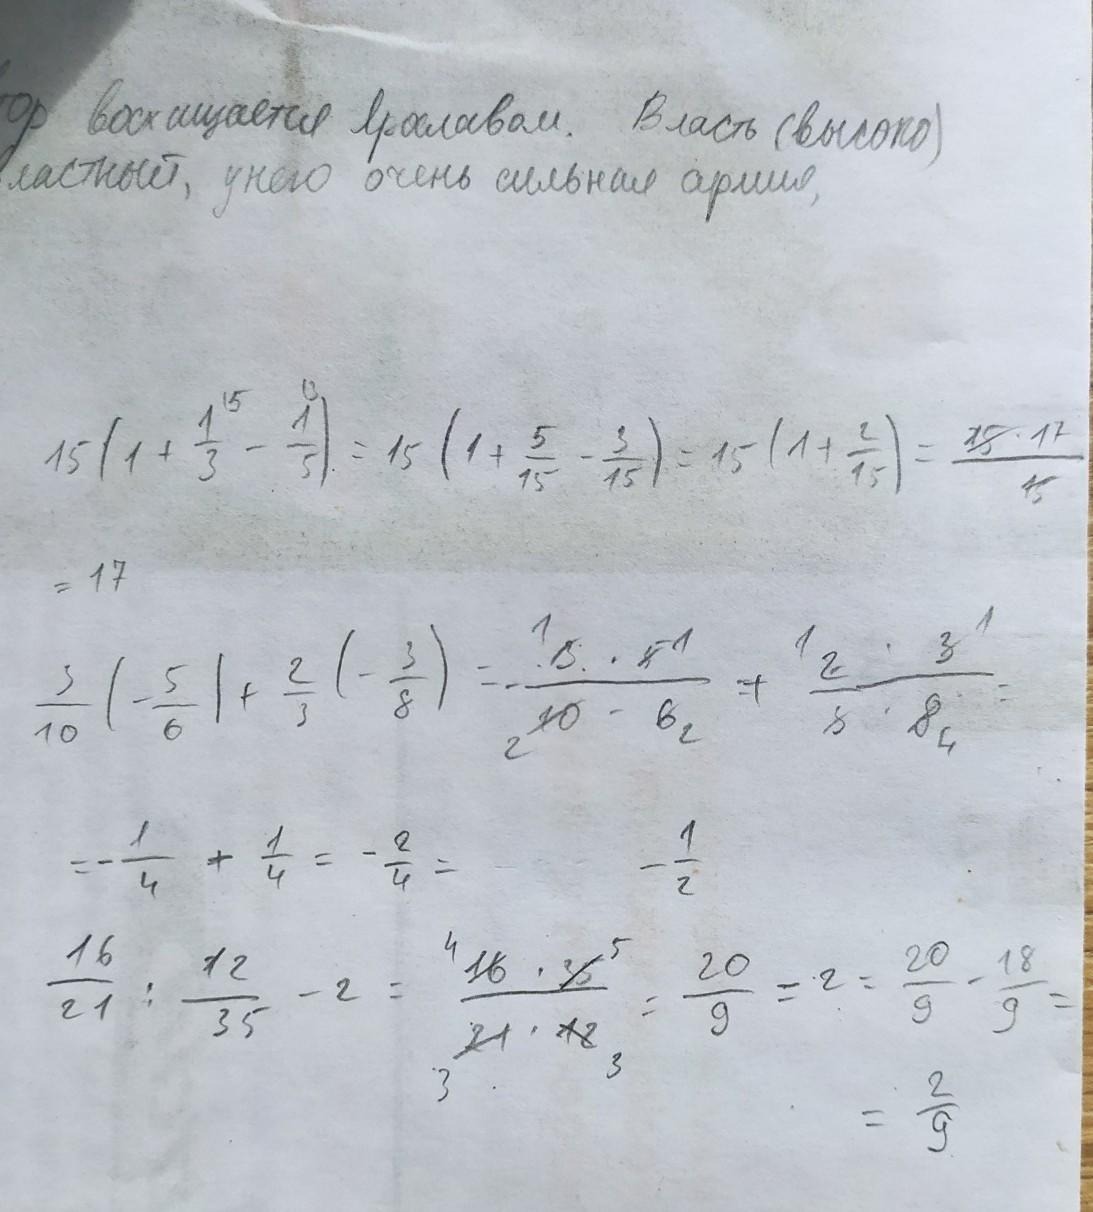 тор восхищается Ярославом. Власть (высоко)
ластный, у него очень сильная армия,
15(1 + 1/3 - 1/5) = 15(1 + 5/15 - 3/15) = 15(1 + 2/15) = 15·17/15
= 17
3/10(-5/6) + 2/3(-3/8) = -3·5/10·6 + 2·3/3·8 =
= -1/4 + 1/4 = -2/4 = -1/2
16/21 : 12/35 - 2 = 16·35/21·12 = 20/9 = 2 = 20/9 - 18/9 =
= 2/9